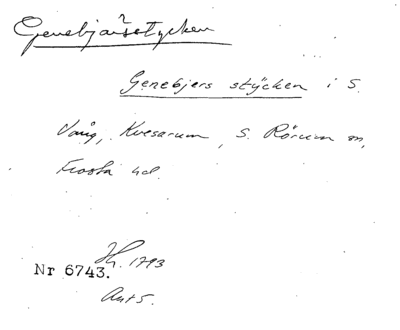 Genebjärsstycken
?
Genebjers stÿcken i S.
Vång, Kvesarum, S. Rörum sn,
Frosta hd.
Nr 6743.
H. 1793
Akt 5.